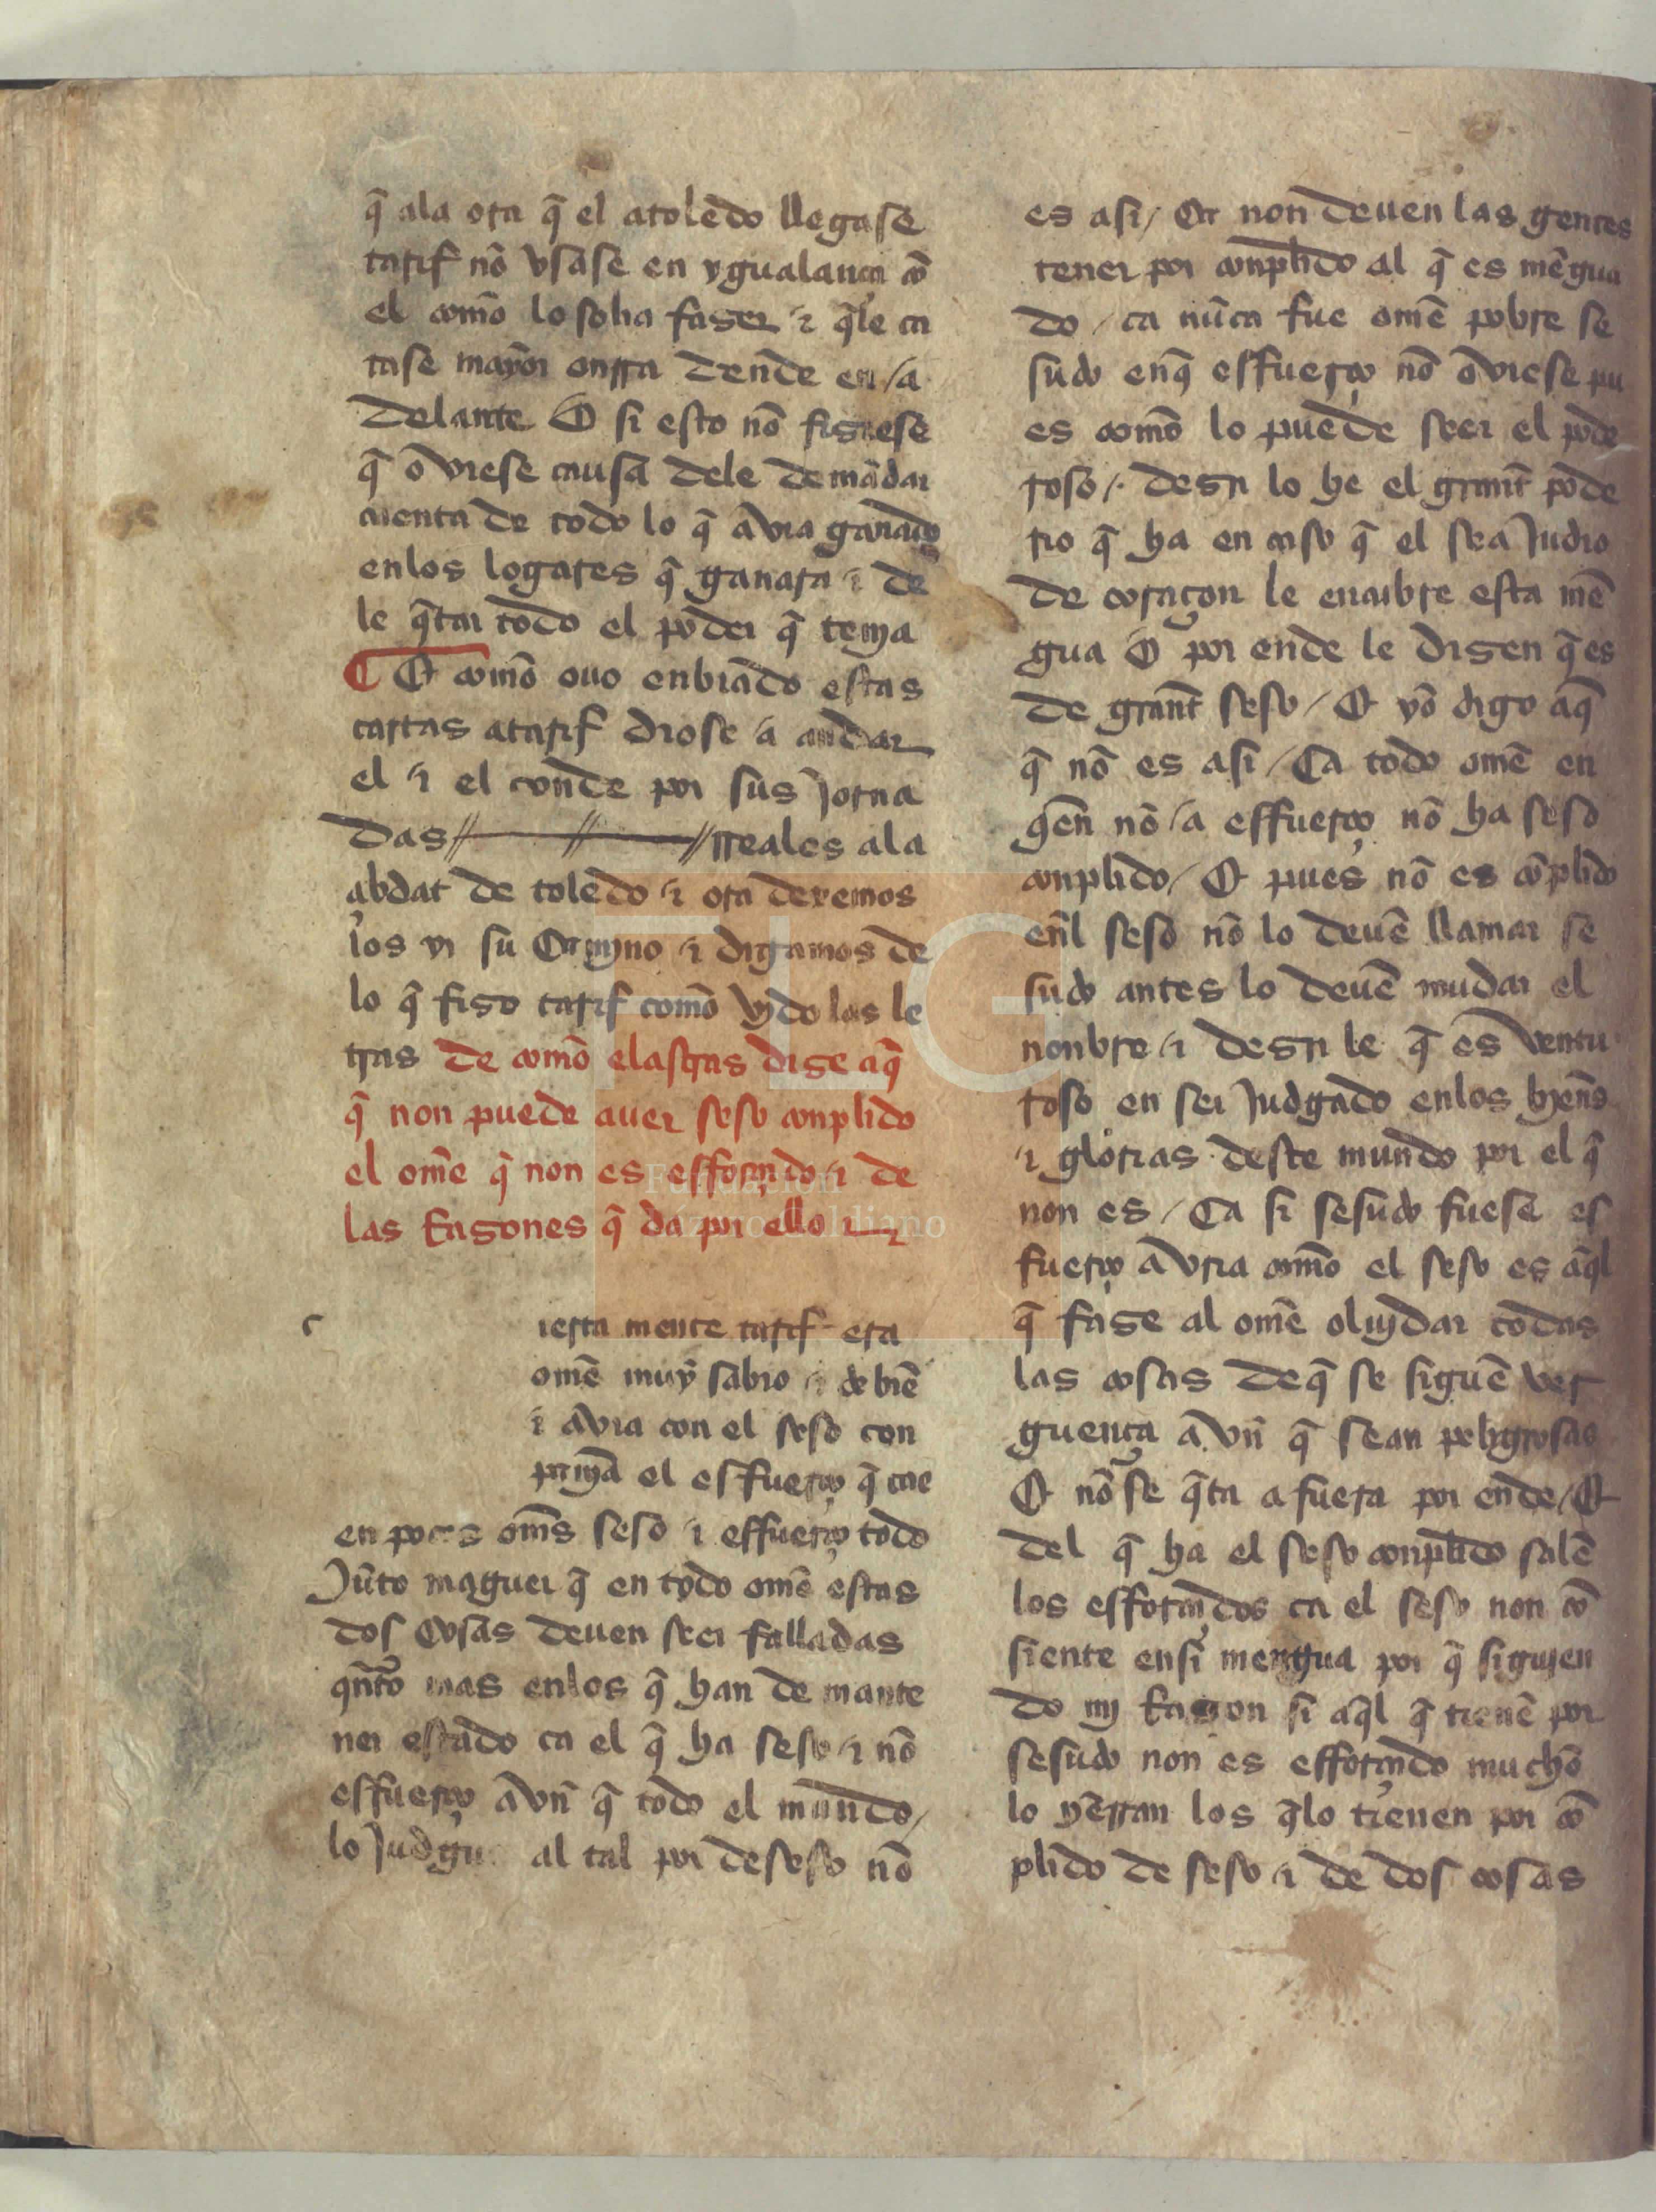 q̃ ala ora q̃ el atoledo llegase
tarif nõ vsase en ygualança cõ
el commõ lo solia faser ⁊ q̃le ca
tase mayor onrra dende en a
delante O si esto nõ fisiese
q̃ oviese causa dele demãdar
cuenta de todo lo q̃ avia ganado
enlos logares q̃ ganara ⁊ de
le q̃tar todo el poder q̃ tenja
¶ Et commõ ouo enbiado estas
cartas atarif diose a andar
el ⁊ el conde por sus jorna
das // // // rreales ala
çibdat de toledo ⁊ ora dexemos
los yr su camjno ⁊ digamos de
lo q̃ fiso tarif commõ vjdo las le
tras de commõ elastras dise aq̃
q̃ non puede auer seso conplido
el om̃e q̃ non es esforçado ⁊ de
las Rasones q̃ da por ello
c ierta mente tarif era
omẽ muy sabio ⁊ de biẽ
⁊ avia con el seso con
primã el esfuerço q̃ cae
en pocos om̃s seso ⁊ esfuerço todo
Jũto maguer q̃ en todo omẽ estas
dos cosas deuen seer falladas
qñto mas enlos q̃ han de mante
ner estado ca el q̃ ha seso ⁊ nõ
esfuerço avñ q̃ todo el mundo
lo Judgue al tal por de seso nõ
es asi / Ca non deuen las gentes
tener por conplido al q̃ es mẽgua
do / ca nũca fue omẽ pobre se
sudo enq̃ esfuerço nõ oviese pu
es commõ lo puede seer el pode
roso / desir lo he el grant pode
rio q̃ ha en caso q̃ el sea Judio
de coraçon le encubre esta mẽ
gua O por ende le disen q̃ es
de grant seso / Et yõ digo aq̃
q̃ nõ es asi / Ca todo omẽ en
q̃en nõ a esfuerço nõ ha seso
conplido / Et pues nõ es cõplido
eñl seso nõ lo deuẽ llamar se
sudo antes lo deuẽ mudar el
nonbre ⁊ desir le q̃ es ventu
roso en ser Judgado enlos bjeñs
⁊ glorias deste mundo por el q̃
non es / Ca si sesudo fuese es
fuerço avria commõ el seso es aq̃l
q̃ fase al omẽ olujdar todas
las cosas deq̃ se siguẽ ver
guença avñ q̃ sean peligrosas
Et nõ se q̃ta afuera por ende / Et
del q̃ ha el seso conplido salẽ
los esforçados ca el seso non cõ
siente ensi mengua por q̃ sigujen
do mj Rason si aq̃l q̃ tienẽ por
sesudo non es esforçado muchõ
lo yẽrran los q̃lo tienen por cõ
plido de seso ⁊ de dos cosas